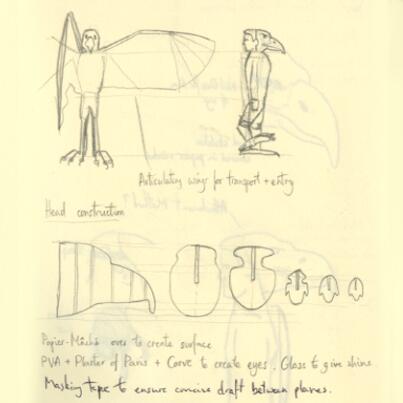 Articulating wings for transport + entry
Head construction
Papier-Mâché over to create surface
PVA + Plaster of Paris + Carve to create eyes. Gloss to give shine
Masking tape to ensure concise draft between planes.